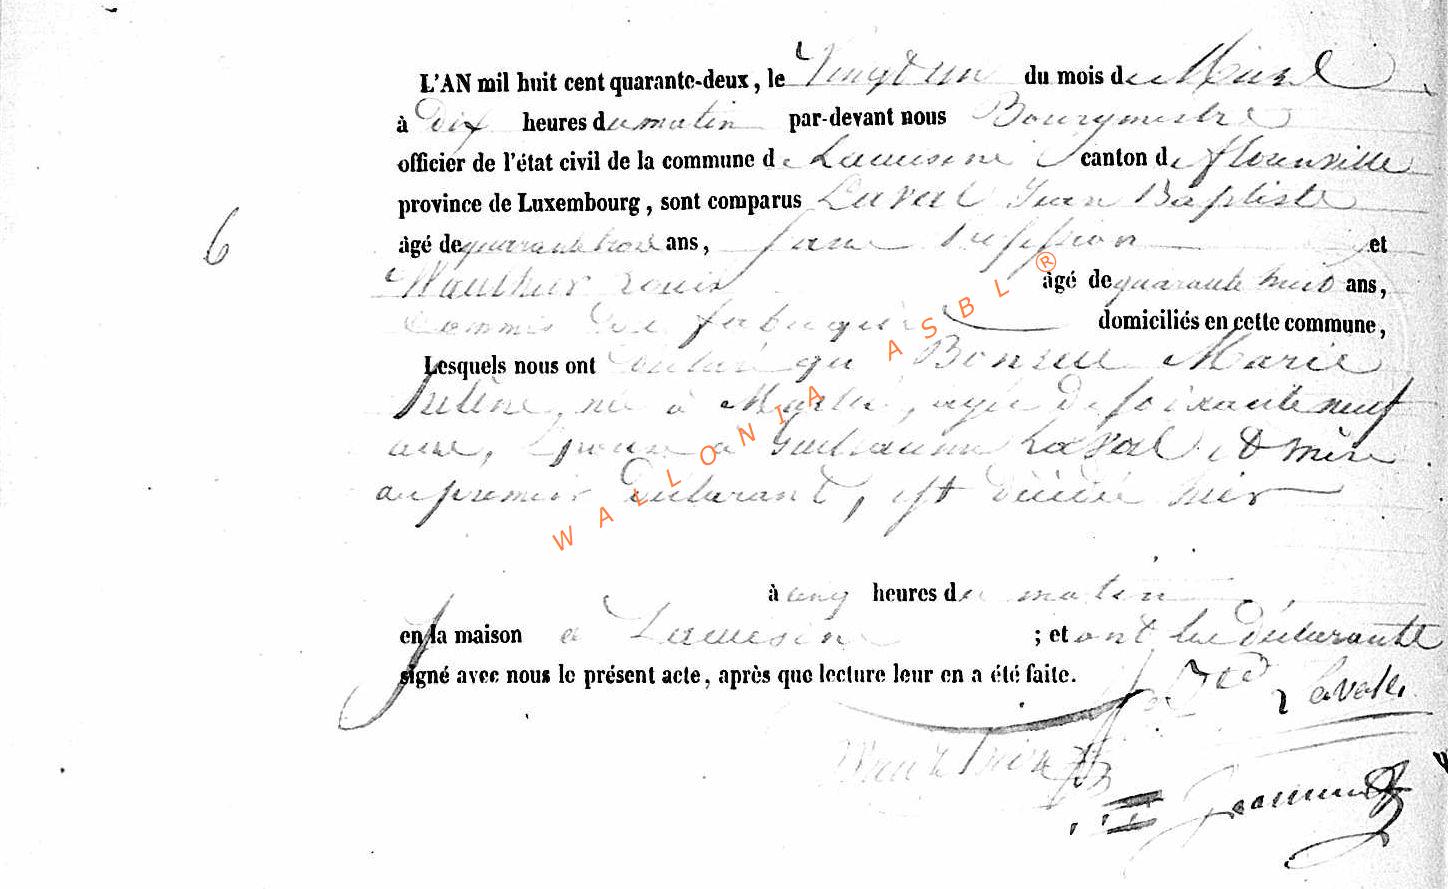 L'AN mil huit cent quarante-deux, le Vingt un du mois de Mars
à Dix heures du matin par-devant nous Bourgmestre
officier de l'état civil de la commune de Lacuisine canton de florenville
province de Luxembourg, sont comparus Laval Jean Baptiste
âgé de quarante trois ans, sans profession et
6
Wauthier Louis âgé de quarante huit ans,
Commis de domiciliés en cette commune,
Lesquels nous ont déclaré que Marie
hélène, née à , agée de soixante neuf
ans, Epouse à Guillaume Laval et mère
au premier Déclarant, est décédée hier
à cinq heures du matin
en la maison à Lacuisine ; et ont les déclarants
signé avec nous le présent acte, après que lecture leur en a été faite.
WALLONIA ASBL ®